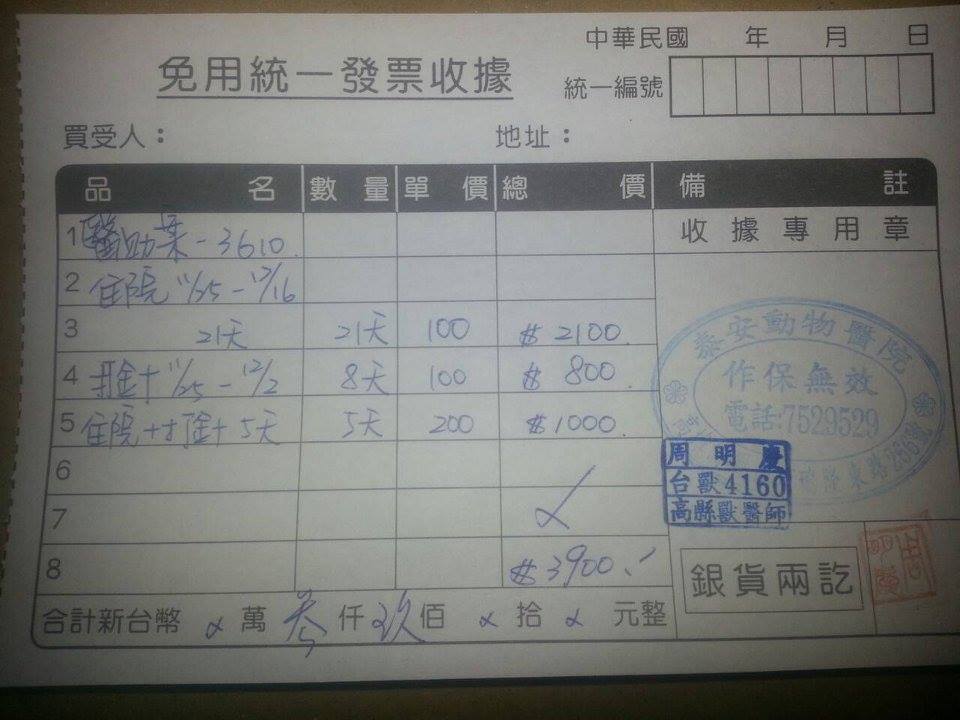 中華民國 年 月 日
免用統一發票收據
統一編號
買受人： 地址：
品名 數量 單價 總價 備註
1 醫助葉-3610. 收據專用章
2 住院 11/25-12/16
3 21天 21天 100 $2100.
4 打金+11/25-12/2 8天 100 $800.
5 住院+打金+5天 5天 200 $1000.
6
7
8 $3900.
合計新台幣 萬 叁仟玖佰 拾 元整
泰安動物醫院
作保無效
電話:7529529
東路256號
周明慶
台獸4160
高縣獸醫師
銀貨兩訖